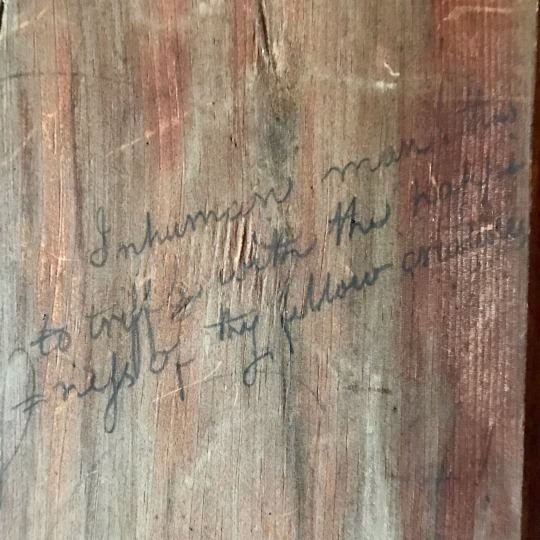 Inhuman man thus
to trifle with the happi
=ness of thy fellow creatures